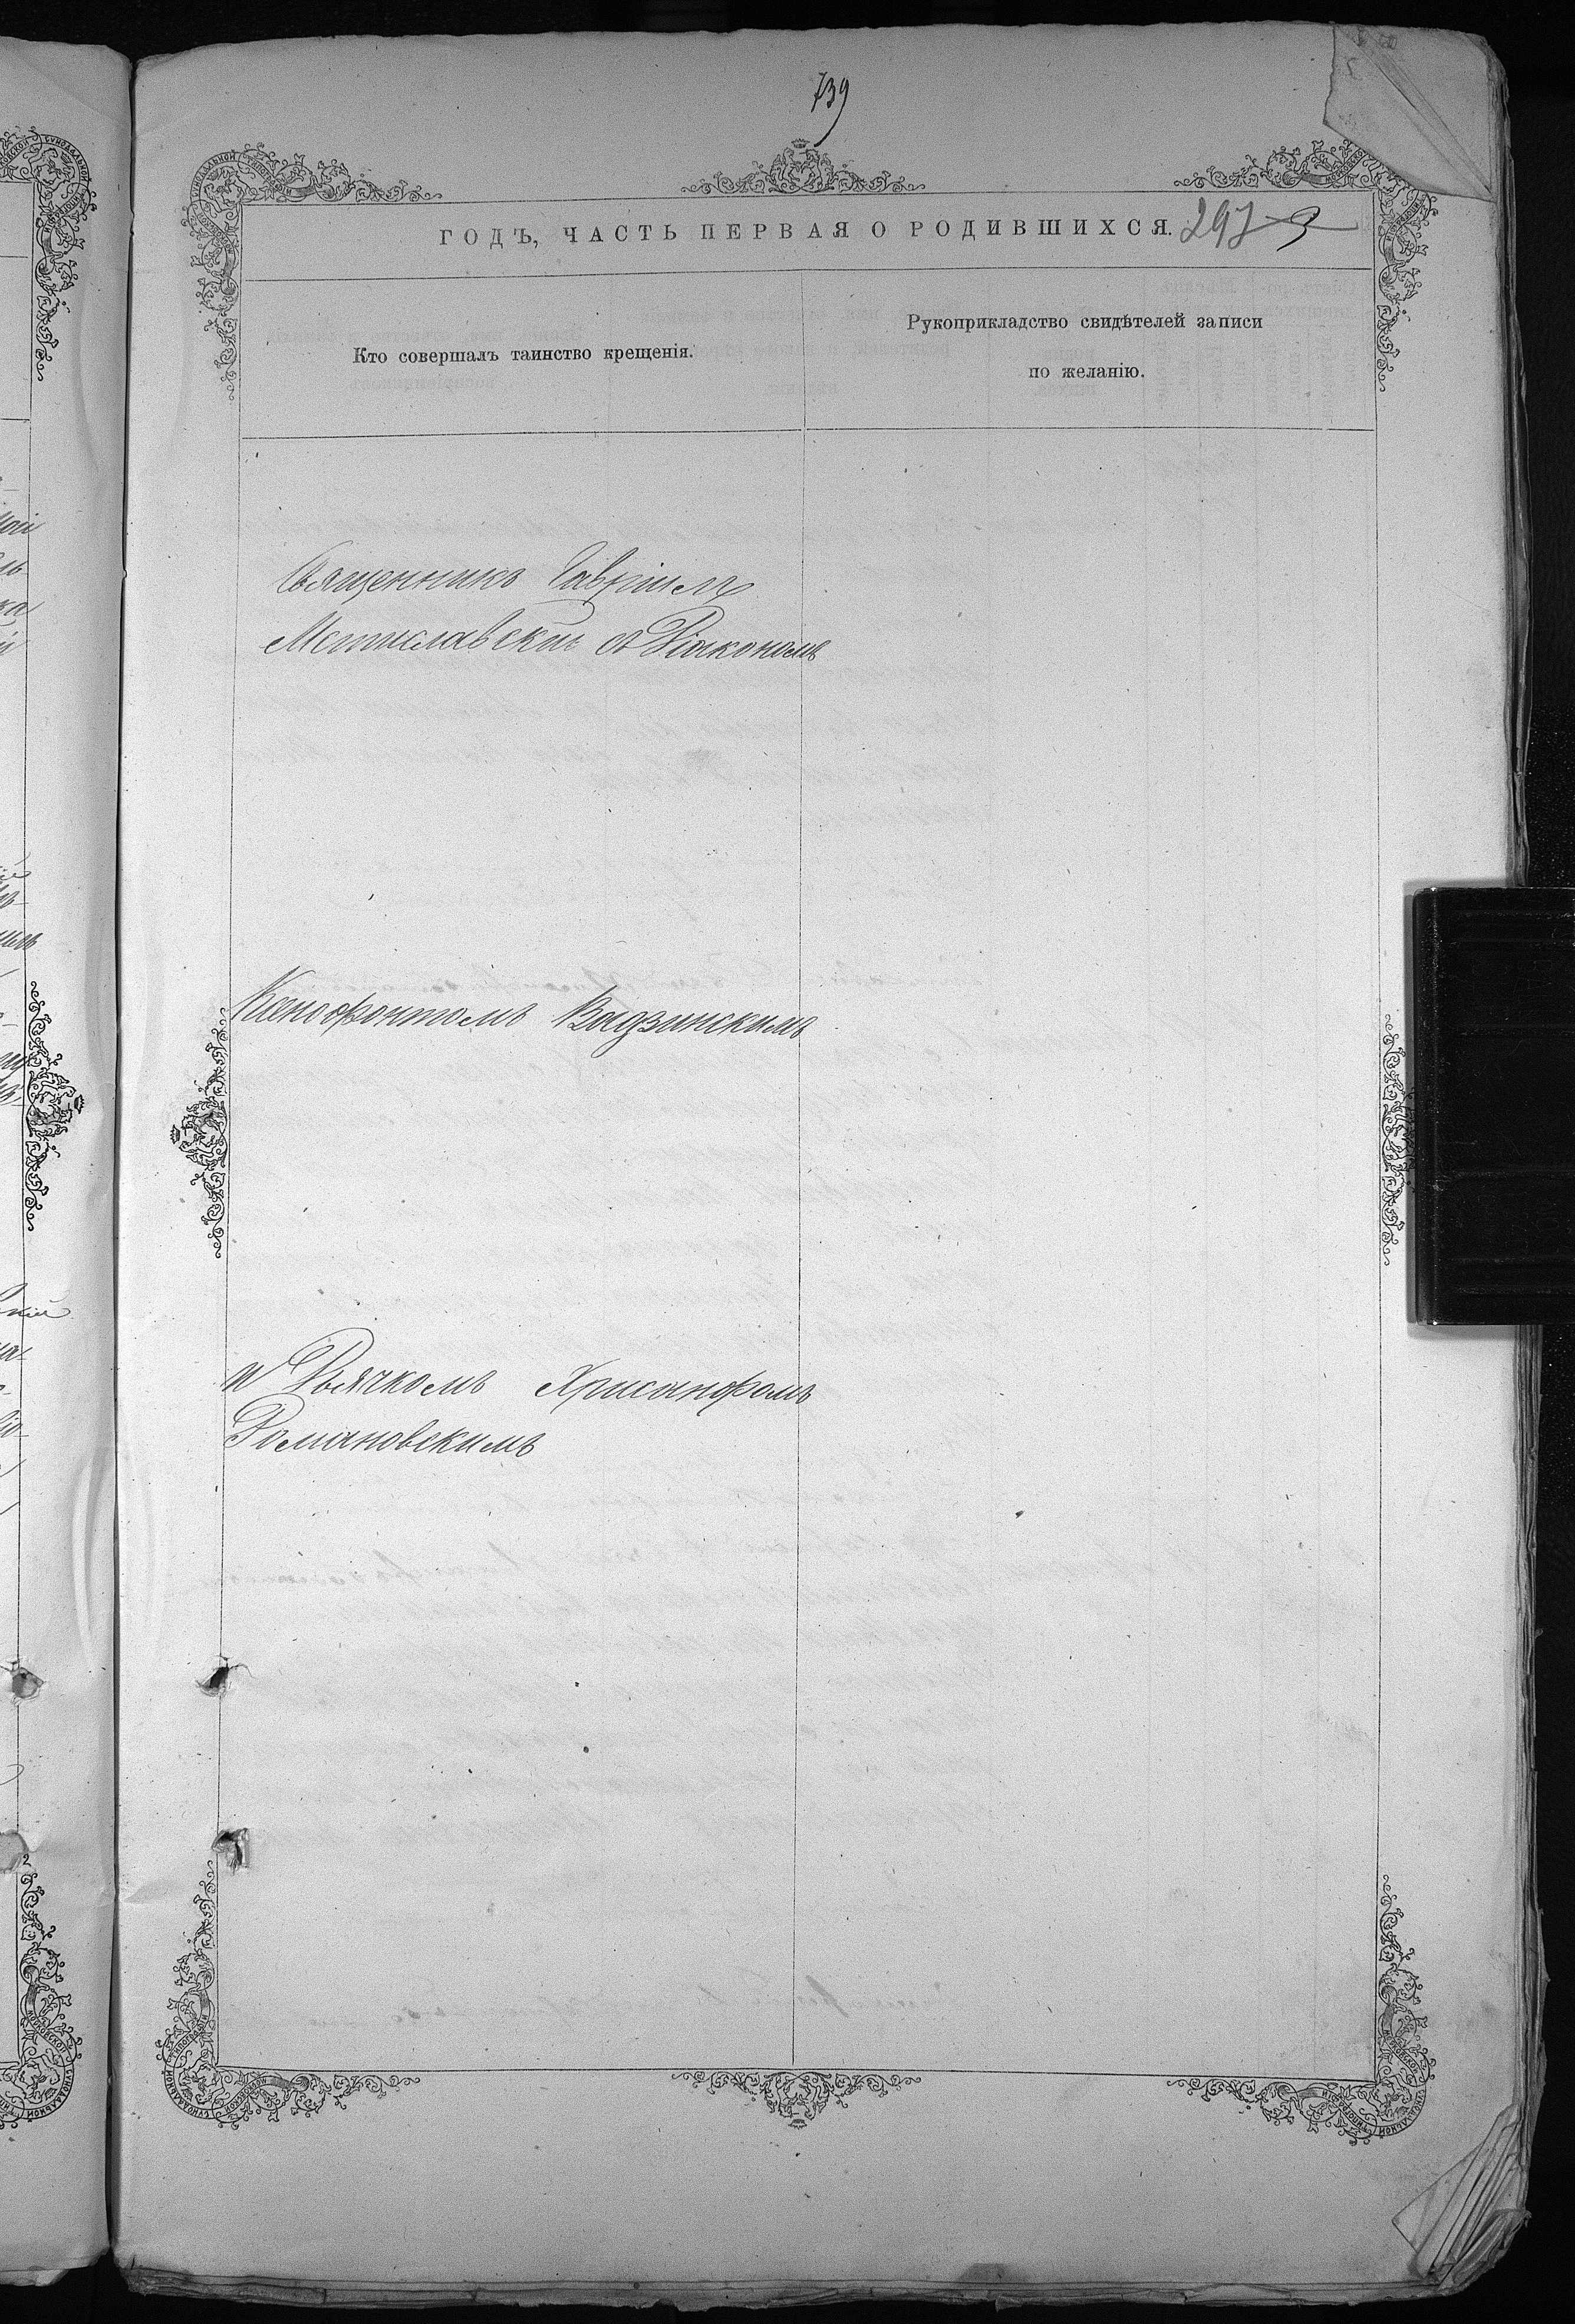 739
ГОДЪ, ЧАСТЬ ПЕРВАЯ О РОДИВШИХСЯ.
297
Кто совершалъ таинство крещенія.
Рукоприкладство свидѣтелей записи
по желанію.
Священникъ Гавріилъ
Мстиславскій съ Діакономъ
Ксенофонтомъ Выдзинскимъ
и Дьячкомъ Хрисанфомъ
Романовскимъ